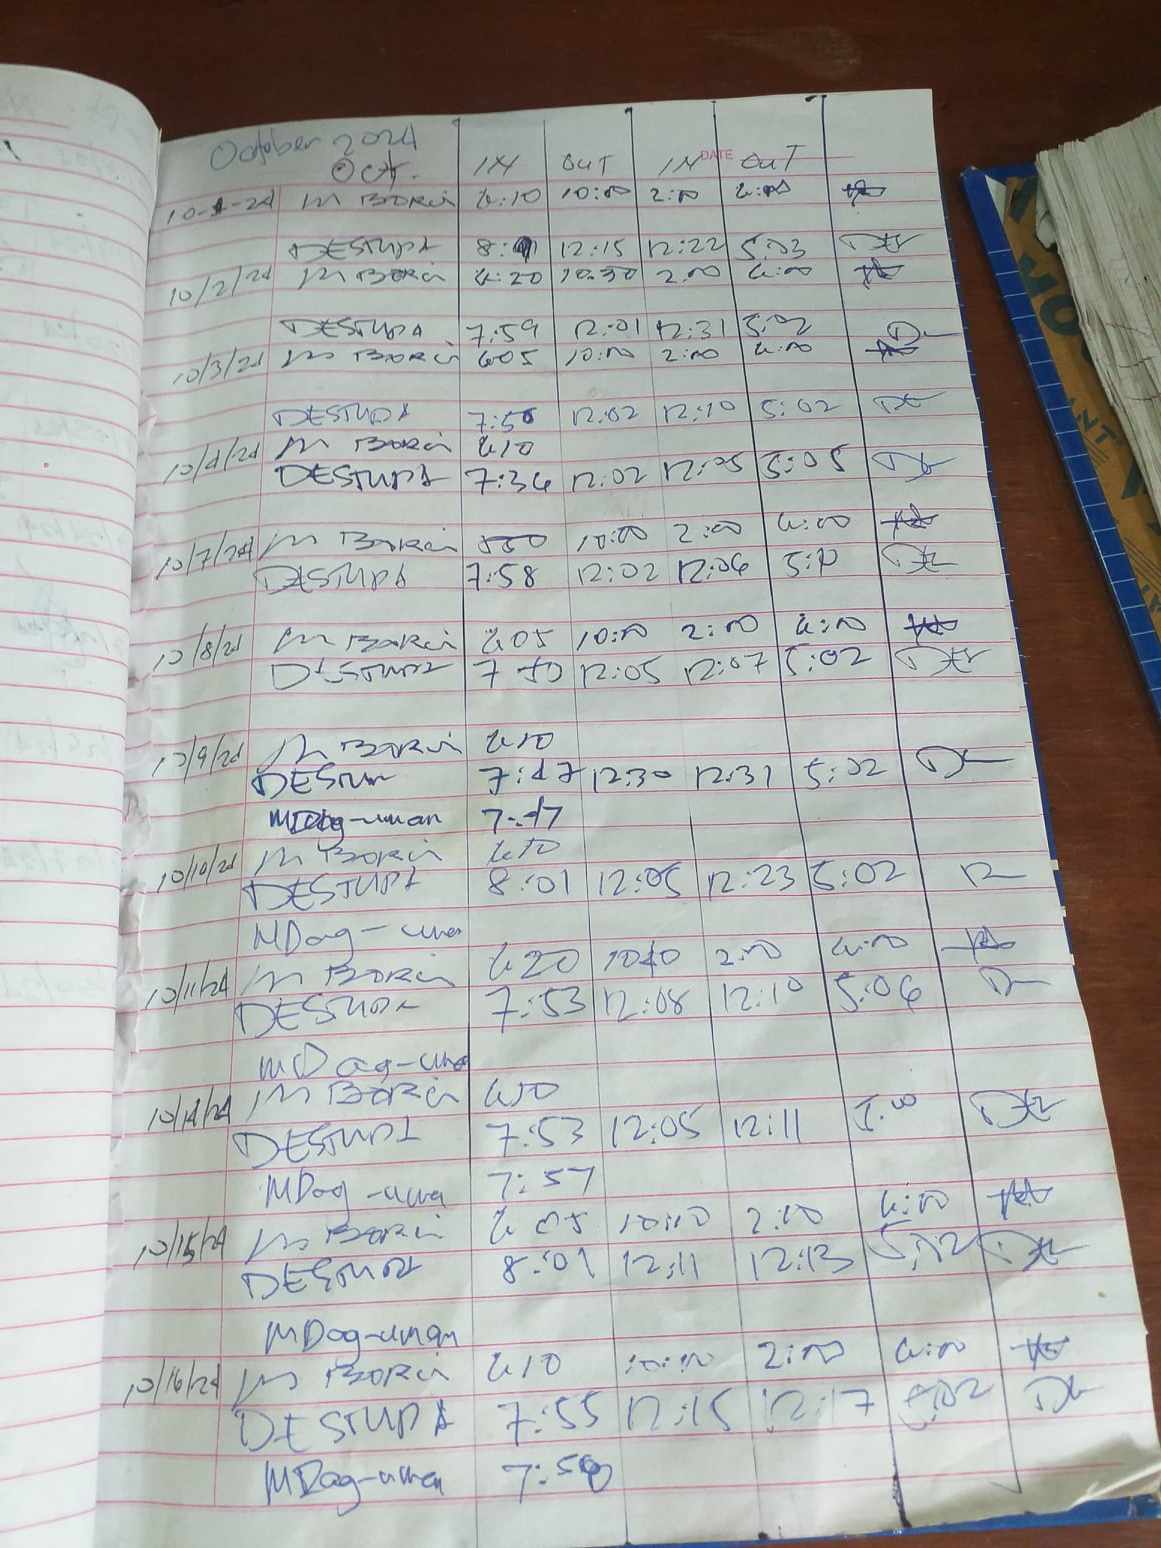 October 2024
Oct. IN OUT IN DATE OUT
10-1-24 M Borci 6:10 10:00 2:00 6:00
DESTUPA 8: 12:15 12:22 5:03
10/2/24 M Borci 6:20 10:30 2:00 6:00
DESTUPA 7:59 12:01 12:31 5:02
10/3/24 M Borci 605 10:00 2:00 6:00
DESTUPA 7:50 12:02 12:10 5:02
10/4/24 M Borci 610
DESTUPA 7:36 12:02 12:05 5:05
10/7/24 M Borci 550 10:00 2:00 6:00
DESTUPA 7:58 12:02 12:06 5:10
10/8/24 M Borci 605 10:00 2:00 6:00
DESTUPA 7 50 12:05 12:07 5:02
10/9/24 M Borci 610
DESTUPA 7:47 12:30 12:31 5:02
MDag-uman 7:47
10/10/24 M Borci 610
DESTUPA 8:01 12:05 12:23 5:02
MDag-uma
10/11/24 M Borci 620 1010 2:00 6:00
DESTUPA 7:53 12:08 12:10 5:06
MDag-uma
10/14/24 M Borci 610
DESTUPA 7:53 12:05 12:11 5:00
MDag-uma 7:57
10/15/24 M Borci 605 10:10 2:00 6:00
DESTUPA 8:01 12:11 12:13 5:02
MDag-uman
10/16/24 M Borci 610 10:00 2:00 6:00
DESTUPA 7:55 12:15 12:17 5:02
MDag-uman 7:50